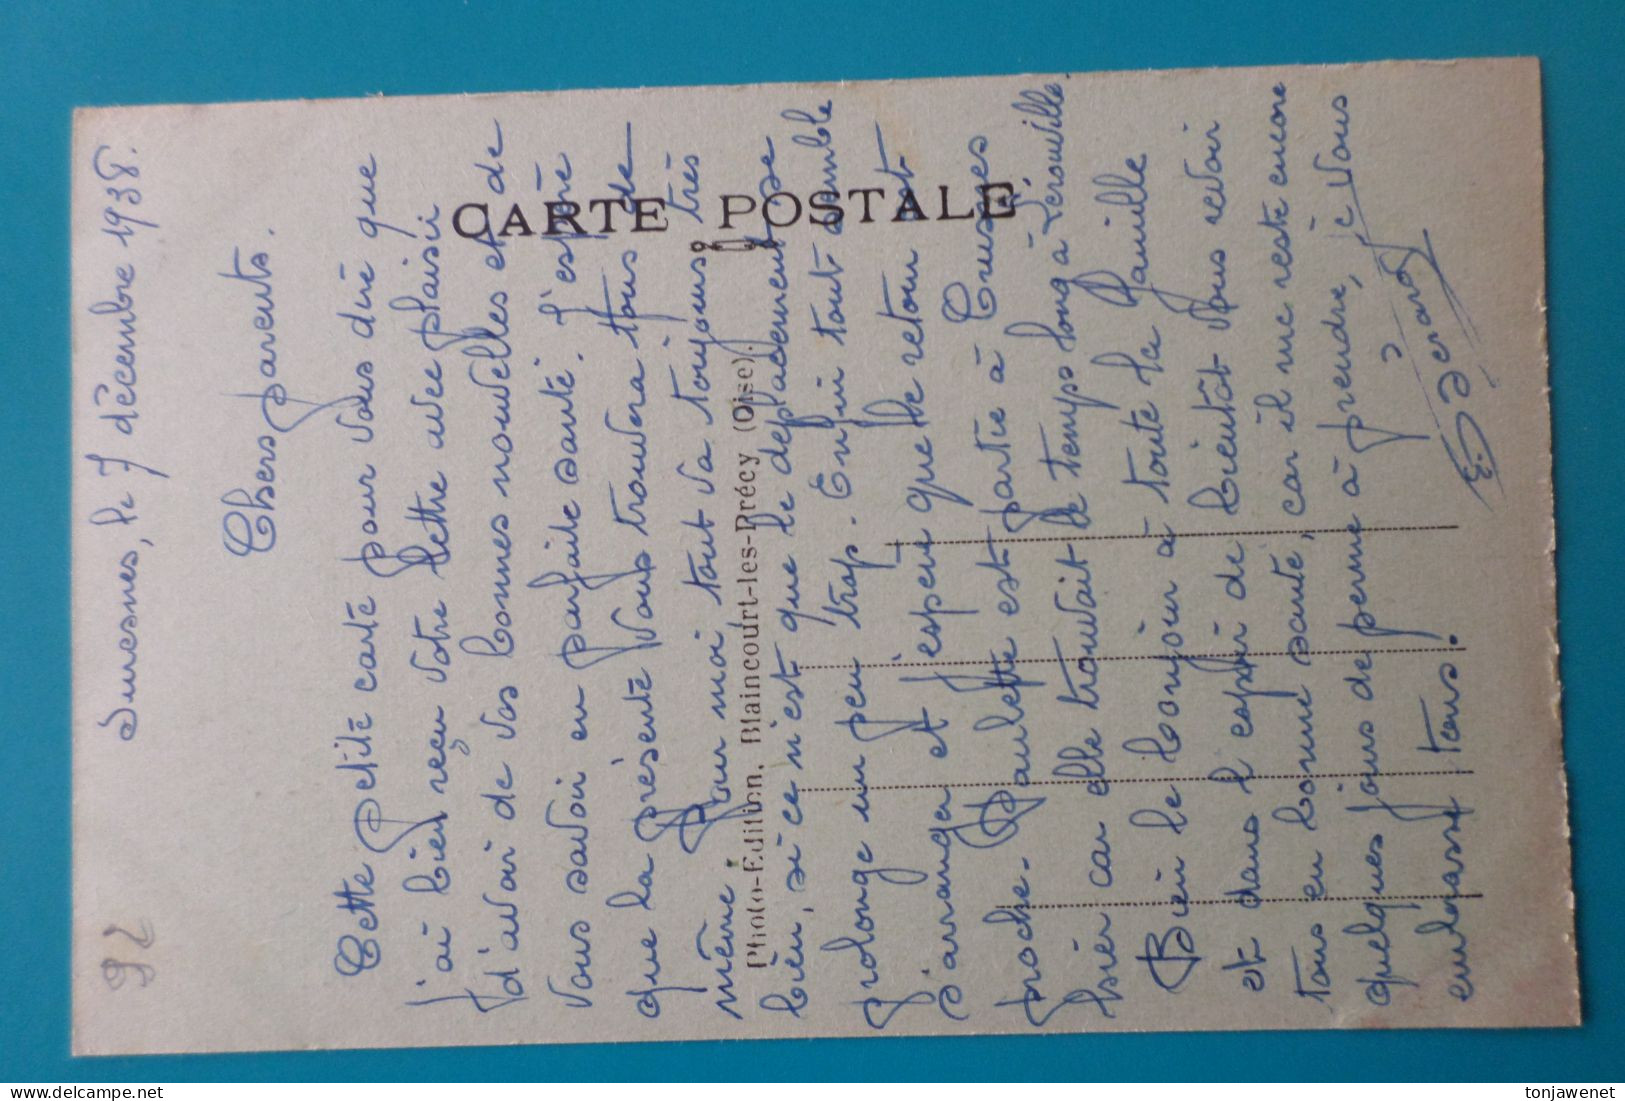 92
Suresnes, le 7 décembre 1938.
Chers parents.
Cette petite carte pour vous dire que
j'ai bien reçu votre lettre avec plaisir
d'avoir de vos bonnes nouvelles et de
vous savoir en parfaite santé. J'espère
que la présente vous trouvera tous de
même. Pour moi, tout va toujours très
bien, si ce n'est que le déplacement se
prolonge un peu trop. Enfin tout semble
s'arranger et j'espère que le retour est
proche. Paulette est partie à
hier car elle trouvait le temps long à Lérouville.
Bien le bonjour à toute la famille
et dans l'espoir de bientôt vous revoir
tous en bonne santé, car il me reste encore
quelques jours de perme à prendre, je vous
embrasse tous.
CARTE POSTALE
Photo-Edition, Blaincourt-les-Précy (Oise).
tonjawenet